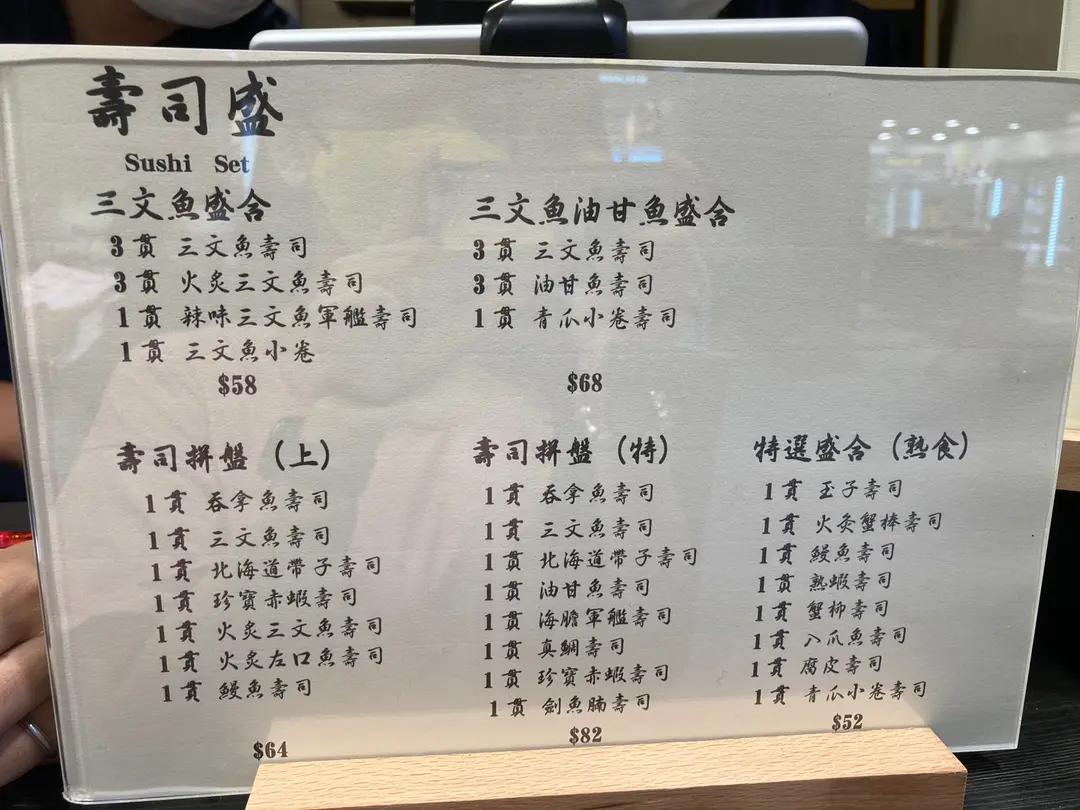 壽司盛
Sushi Set
三文魚盛合
3貫 三文魚壽司
3貫 火炙三文魚壽司
1貫 辣味三文魚軍艦壽司
1貫 三文魚小卷
$58
三文魚油甘魚盛合
3貫 三文魚壽司
3貫 油甘魚壽司
1貫 青瓜小卷壽司
$68
壽司拼盤（上）
1貫 吞拿魚壽司
1貫 三文魚壽司
1貫 北海道帶子壽司
1貫 珍寶赤蝦壽司
1貫 火炙三文魚壽司
1貫 火炙左口魚壽司
1貫 鰻魚壽司
$64
壽司拼盤（特）
1貫 吞拿魚壽司
1貫 三文魚壽司
1貫 北海道帶子壽司
1貫 油甘魚壽司
1貫 海膽軍艦壽司
1貫 真鯛壽司
1貫 珍寶赤蝦壽司
1貫 劍魚腩壽司
$82
特選盛合（熟食）
1貫 玉子壽司
1貫 火灸蟹棒壽司
1貫 鰻魚壽司
1貫 熟蝦壽司
1貫 蟹柳壽司
1貫 八爪魚壽司
1貫 腐皮壽司
1貫 青瓜小卷壽司
$52